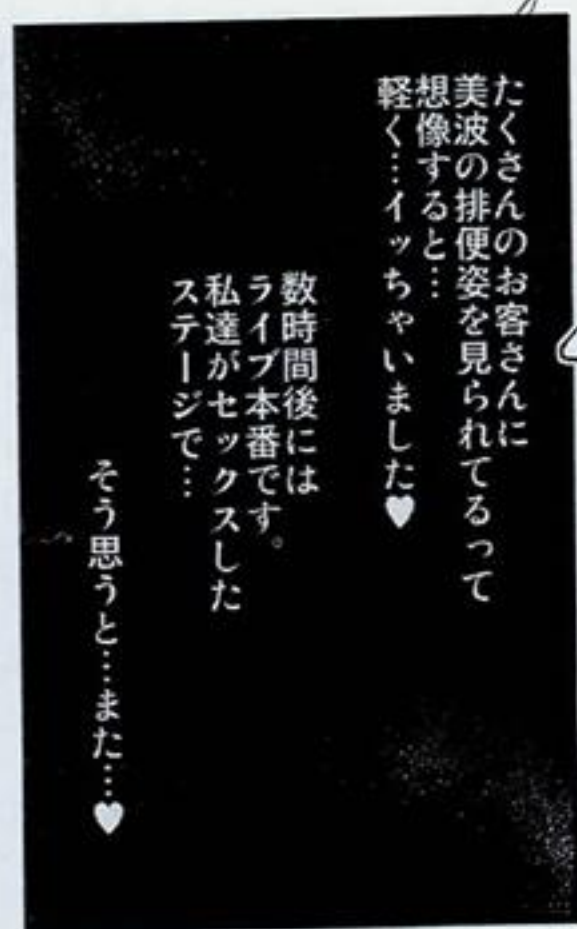 たくさんのお客さんに
美波の排便姿を見られてるって
想像すると…
軽く…イッちゃいました♥
数時間後には
ライブ本番です。
私達がセックスした
ステージで…
そう思うと…また…♥